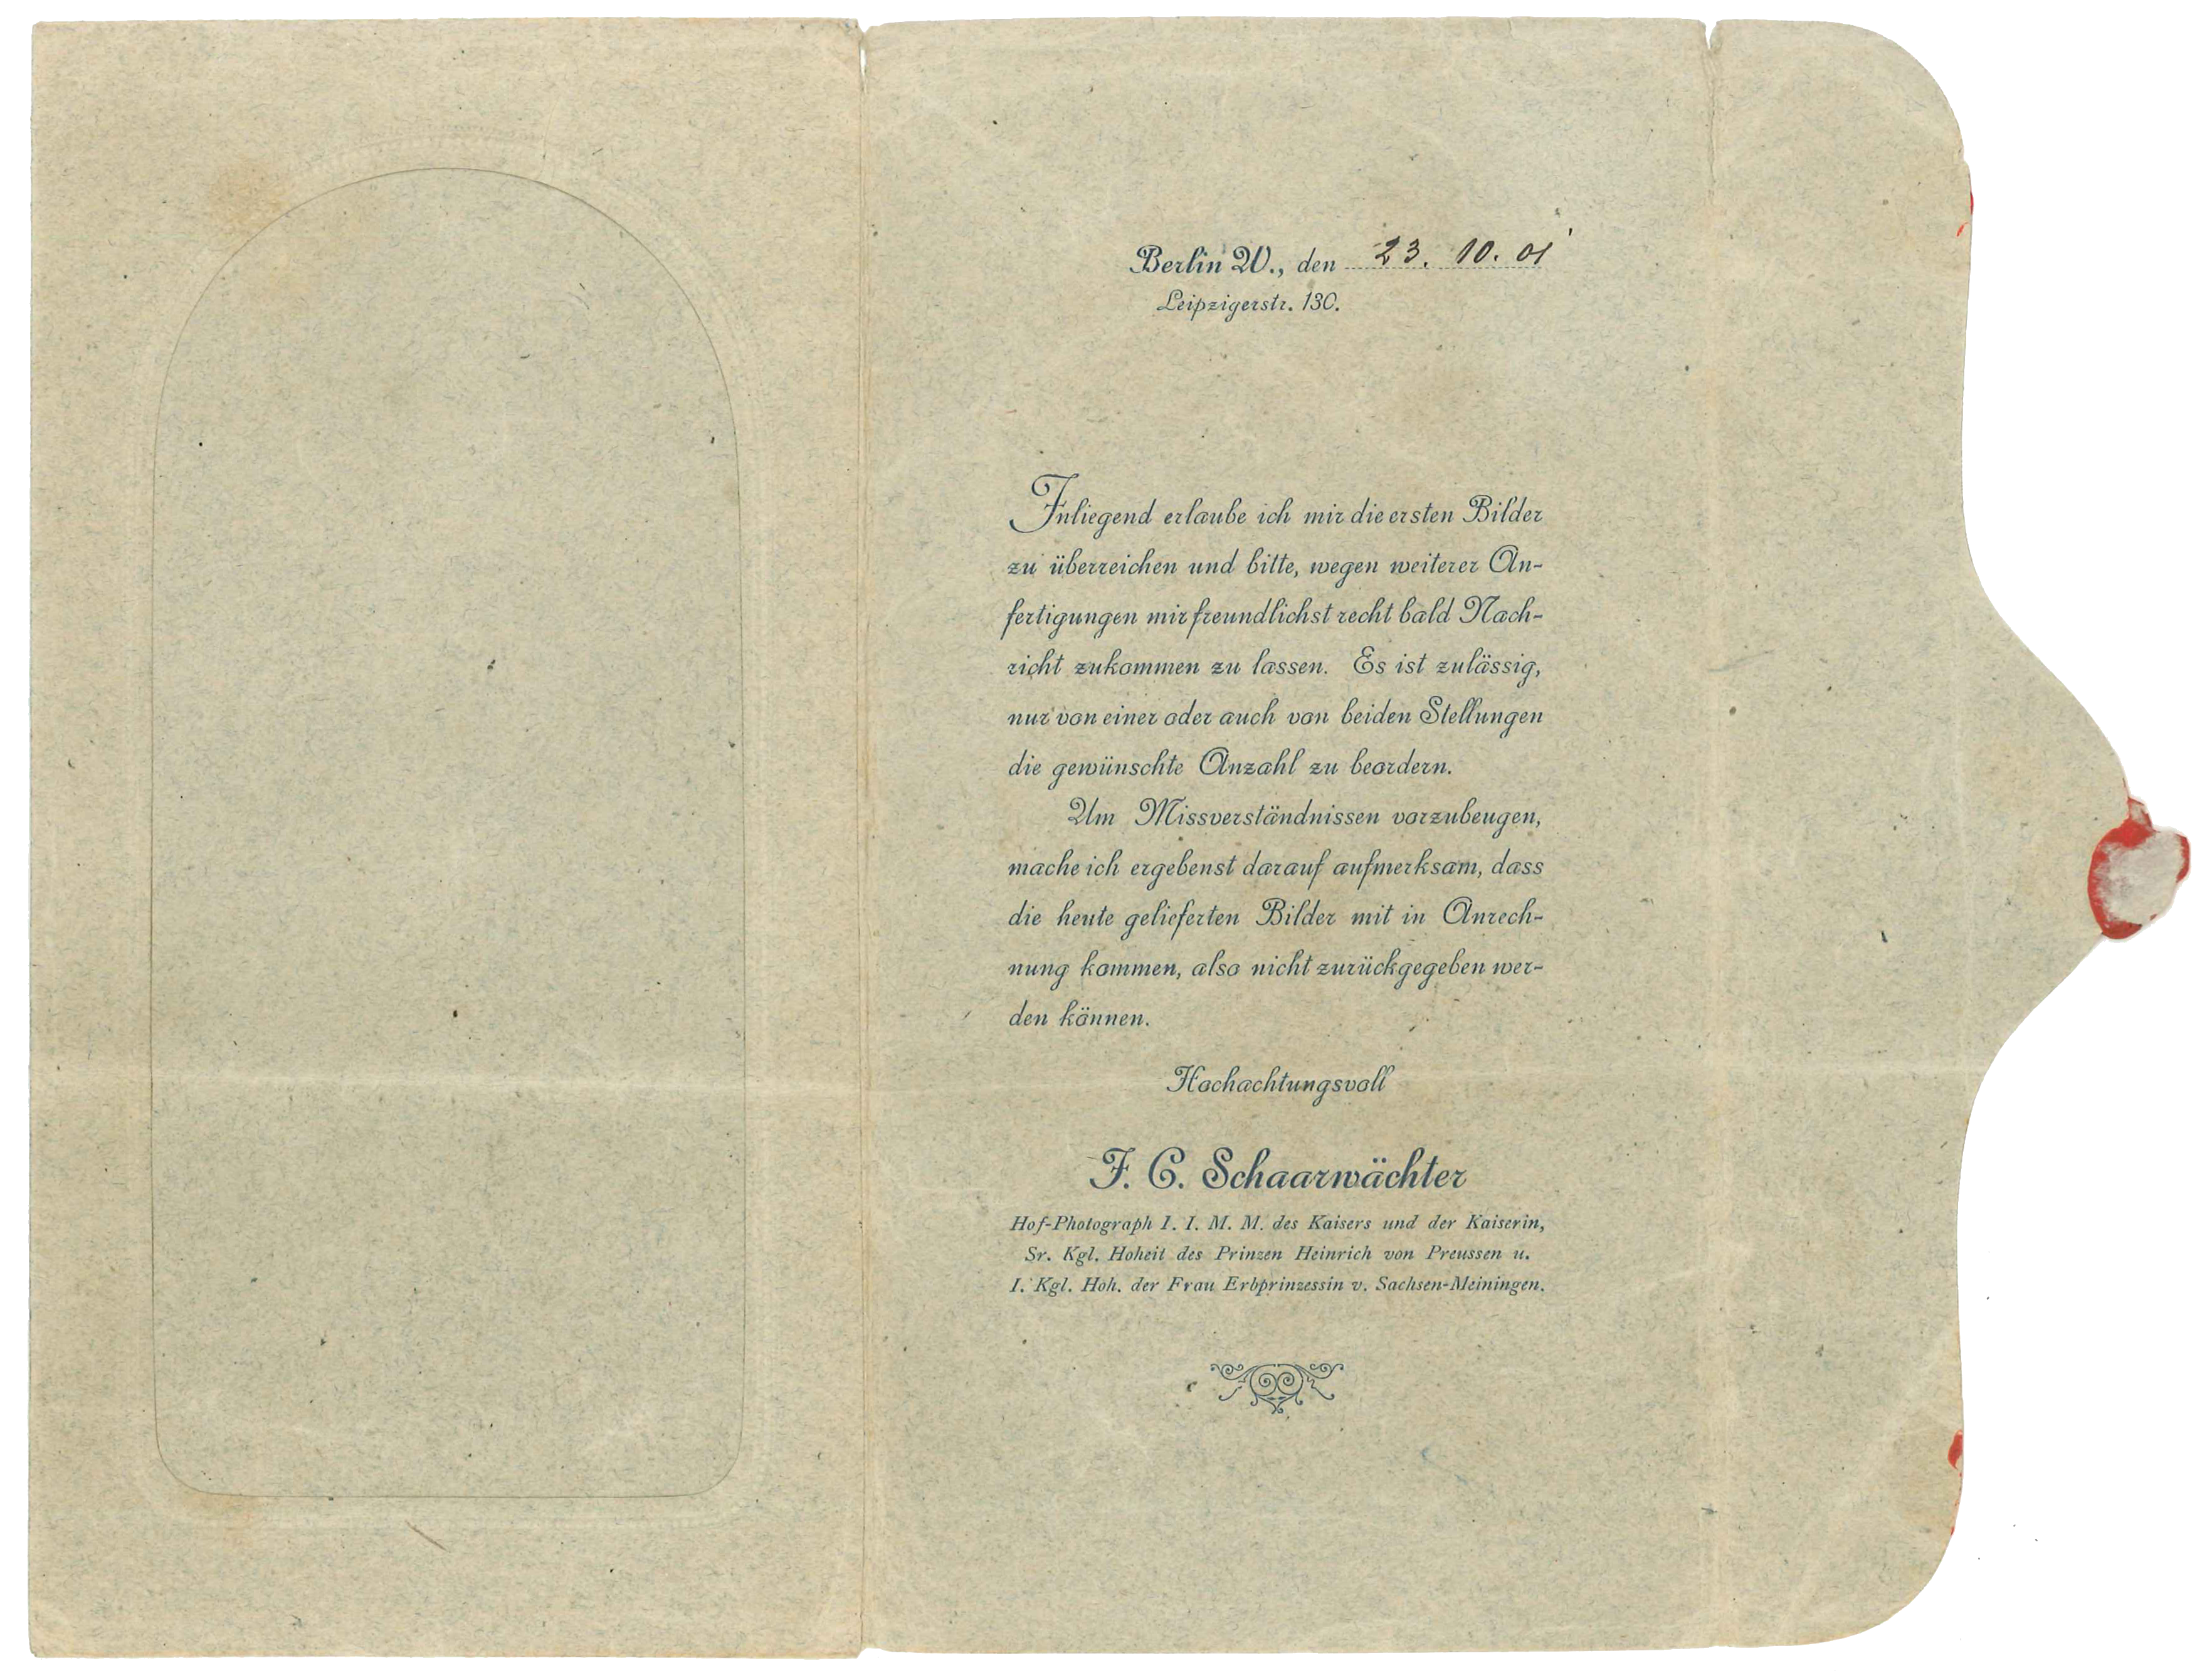 Berlin W., den 23. 10. 01
Leipzigerstr. 130.
Inliegend erlaube ich mir die ersten Bilder
zu überreichen und bitte, wegen weiterer An-
fertigungen mir freundlichst recht bald Nach-
richt zukommen zu lassen. Es ist zulässig,
nur von einer oder auch von beiden Stellungen
die gewünschte Anzahl zu beordern.
Um Missverständnissen vorzubeugen,
mache ich ergebenst darauf aufmerksam, dass
die heute gelieferten Bilder mit in Anrech-
nung kommen, also nicht zurückgegeben wer-
den können.
Hochachtungsvoll
F. C. Schaarwächter
Hof-Photograph I. I. M. M. des Kaisers und der Kaiserin,
Sr. Kgl. Hoheit des Prinzen Heinrich von Preussen u.
I. Kgl. Hoh. der Frau Erbprinzessin v. Sachsen-Meiningen.